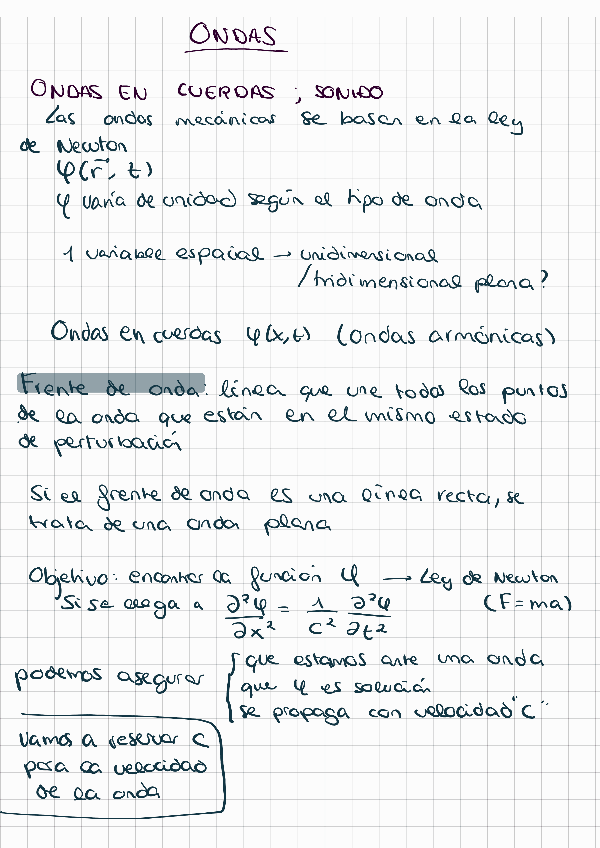 ONDAS
ONDAS EN CUERDAS ; SONIDO
Las ondas mecánicas se basan en la ley
de Newton
φ(r⃗, t)
φ varía de unidad según el tipo de onda
1 variable espacial → unidimensional
/tridimensional plana?
Ondas en cuerdas φ(x,t) (ondas armónicas)
Frente de onda: línea que une todos los puntos
de la onda que están en el mismo estado
de perturbación
Si el frente de onda es una línea recta, se
trata de una onda plana
Objetivo: encontrar la función φ → Ley de Newton
Si se llega a ∂²φ/∂x² = 1/c² ∂²φ/∂t² (F=ma)
podemos asegurar { que estamos ante una onda
que φ es solución
se propaga con velocidad "c"
Vamos a reservar C
para la velocidad
de la onda